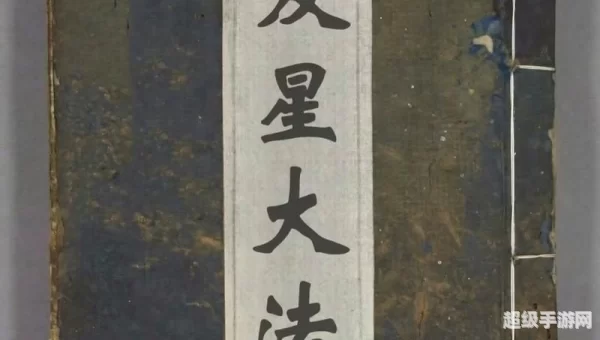 星大法
超级手游网